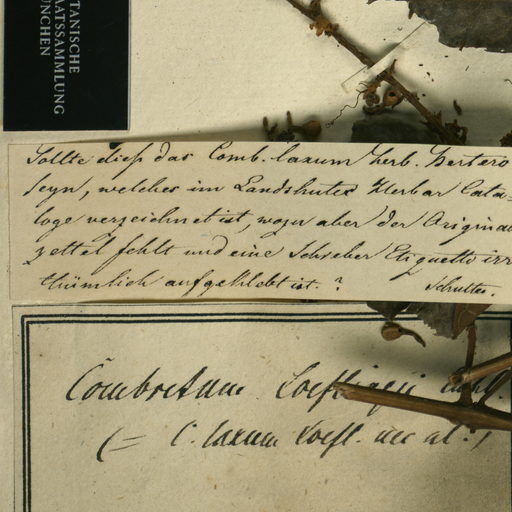 TANISCHE
AATSSAMMLUNG
ÜNCHEN
Sollte dieß das Comb. laxum herb. Bertero
seyn, welches im Landshuter Herbar Cata-
loge verzeichnet ist, wozu aber der Original
zettel fehlt und eine Schreber Etiquette irr
thümlich aufgeklebt ist. ?
Schultes.
Combretum Loeflingii
(= C. laxum Loefl. nec al.)